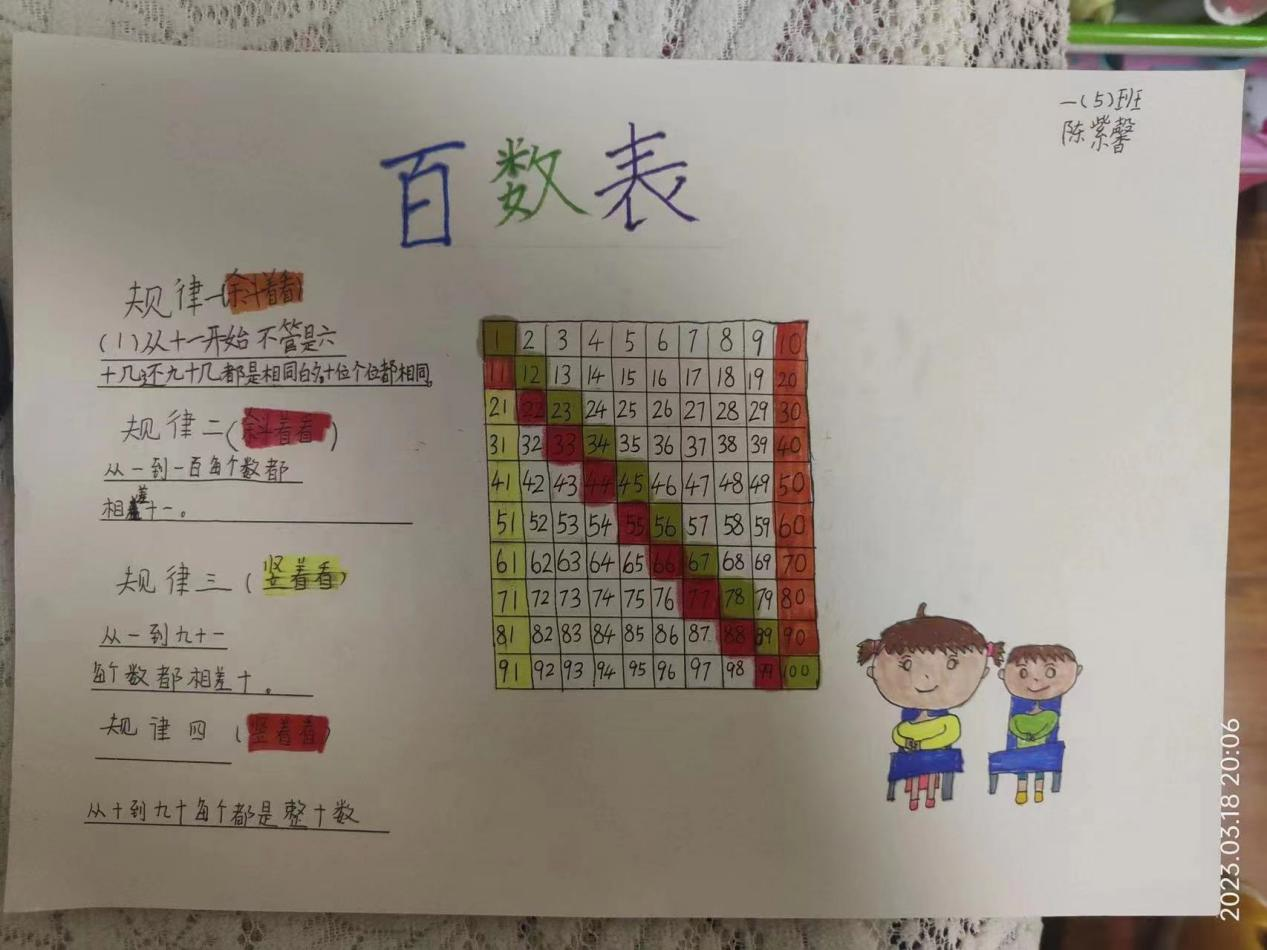 一(5)班
陈紫馨
百数表
规律一(斜着看)
(1)从十一开始 不管是六
十几还九十几都是相同的，十位个位都相同。
规律二(斜着看)
从一到一百每个数都
相差十一。
规律三(竖着看)
从一到九十一
每个数都相差十。
规律四(竖着看)
从十到九十每个都是整十数
1 2 3 4 5 6 7 8 9 10
11 12 13 14 15 16 17 18 19 20
21 22 23 24 25 26 27 28 29 30
31 32 33 34 35 36 37 38 39 40
41 42 43 44 45 46 47 48 49 50
51 52 53 54 55 56 57 58 59 60
61 62 63 64 65 66 67 68 69 70
71 72 73 74 75 76 77 78 79 80
81 82 83 84 85 86 87 88 89 90
91 92 93 94 95 96 97 98 99 100
2023.03.18 20:06